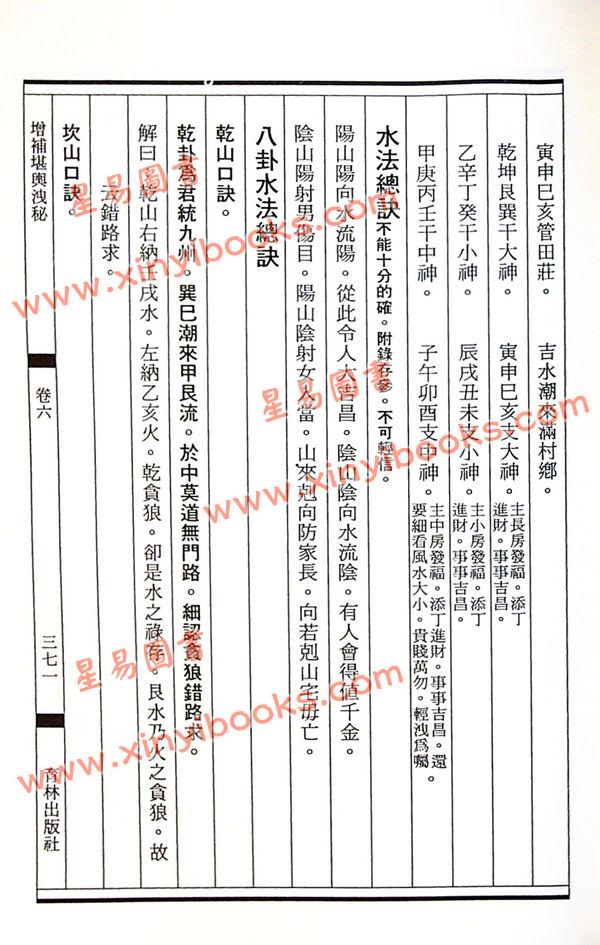 寅申巳亥管田莊。 吉水潮來滿村鄉。
乾坤艮巽干大神。 寅申巳亥支大神。主長房發福。添丁進財。事事吉昌。
乙辛丁癸干小神。 辰戌丑未支小神。主小房發福。添丁進財。事事吉昌。
甲庚丙壬干中神。 子午卯酉支中神。主中房發福。添丁進財。事事吉昌。還要細看風水大小。貴賤萬勿。輕洩爲囑。
水法總訣不能十分的確。附錄存參。不可輕信。
陽山陽向水流陽。從此令人大吉昌。陰山陰向水流陰。有人會得值千金。
陰山陽射男傷目。陽山陰射女人當。山來剋向防家長。向若剋山宅毋亡。
八卦水法總訣
乾山口訣。
乾卦爲君統九州。巽巳潮來甲艮流。於中莫道無門路。細認貪狼錯路求。
解曰 乾山右納壬戌水。左納乙亥火。乾貪狼。卻是水之祿存。艮水乃火之貪狼。故
云錯路求。
坎山口訣。
增補堪輿洩秘
卷六
三七一
育林出版社
星易圖書
www.xinyibooks.com
星易圖書
www.xinyibooks.com
星易圖書
www.xinyibooks.com